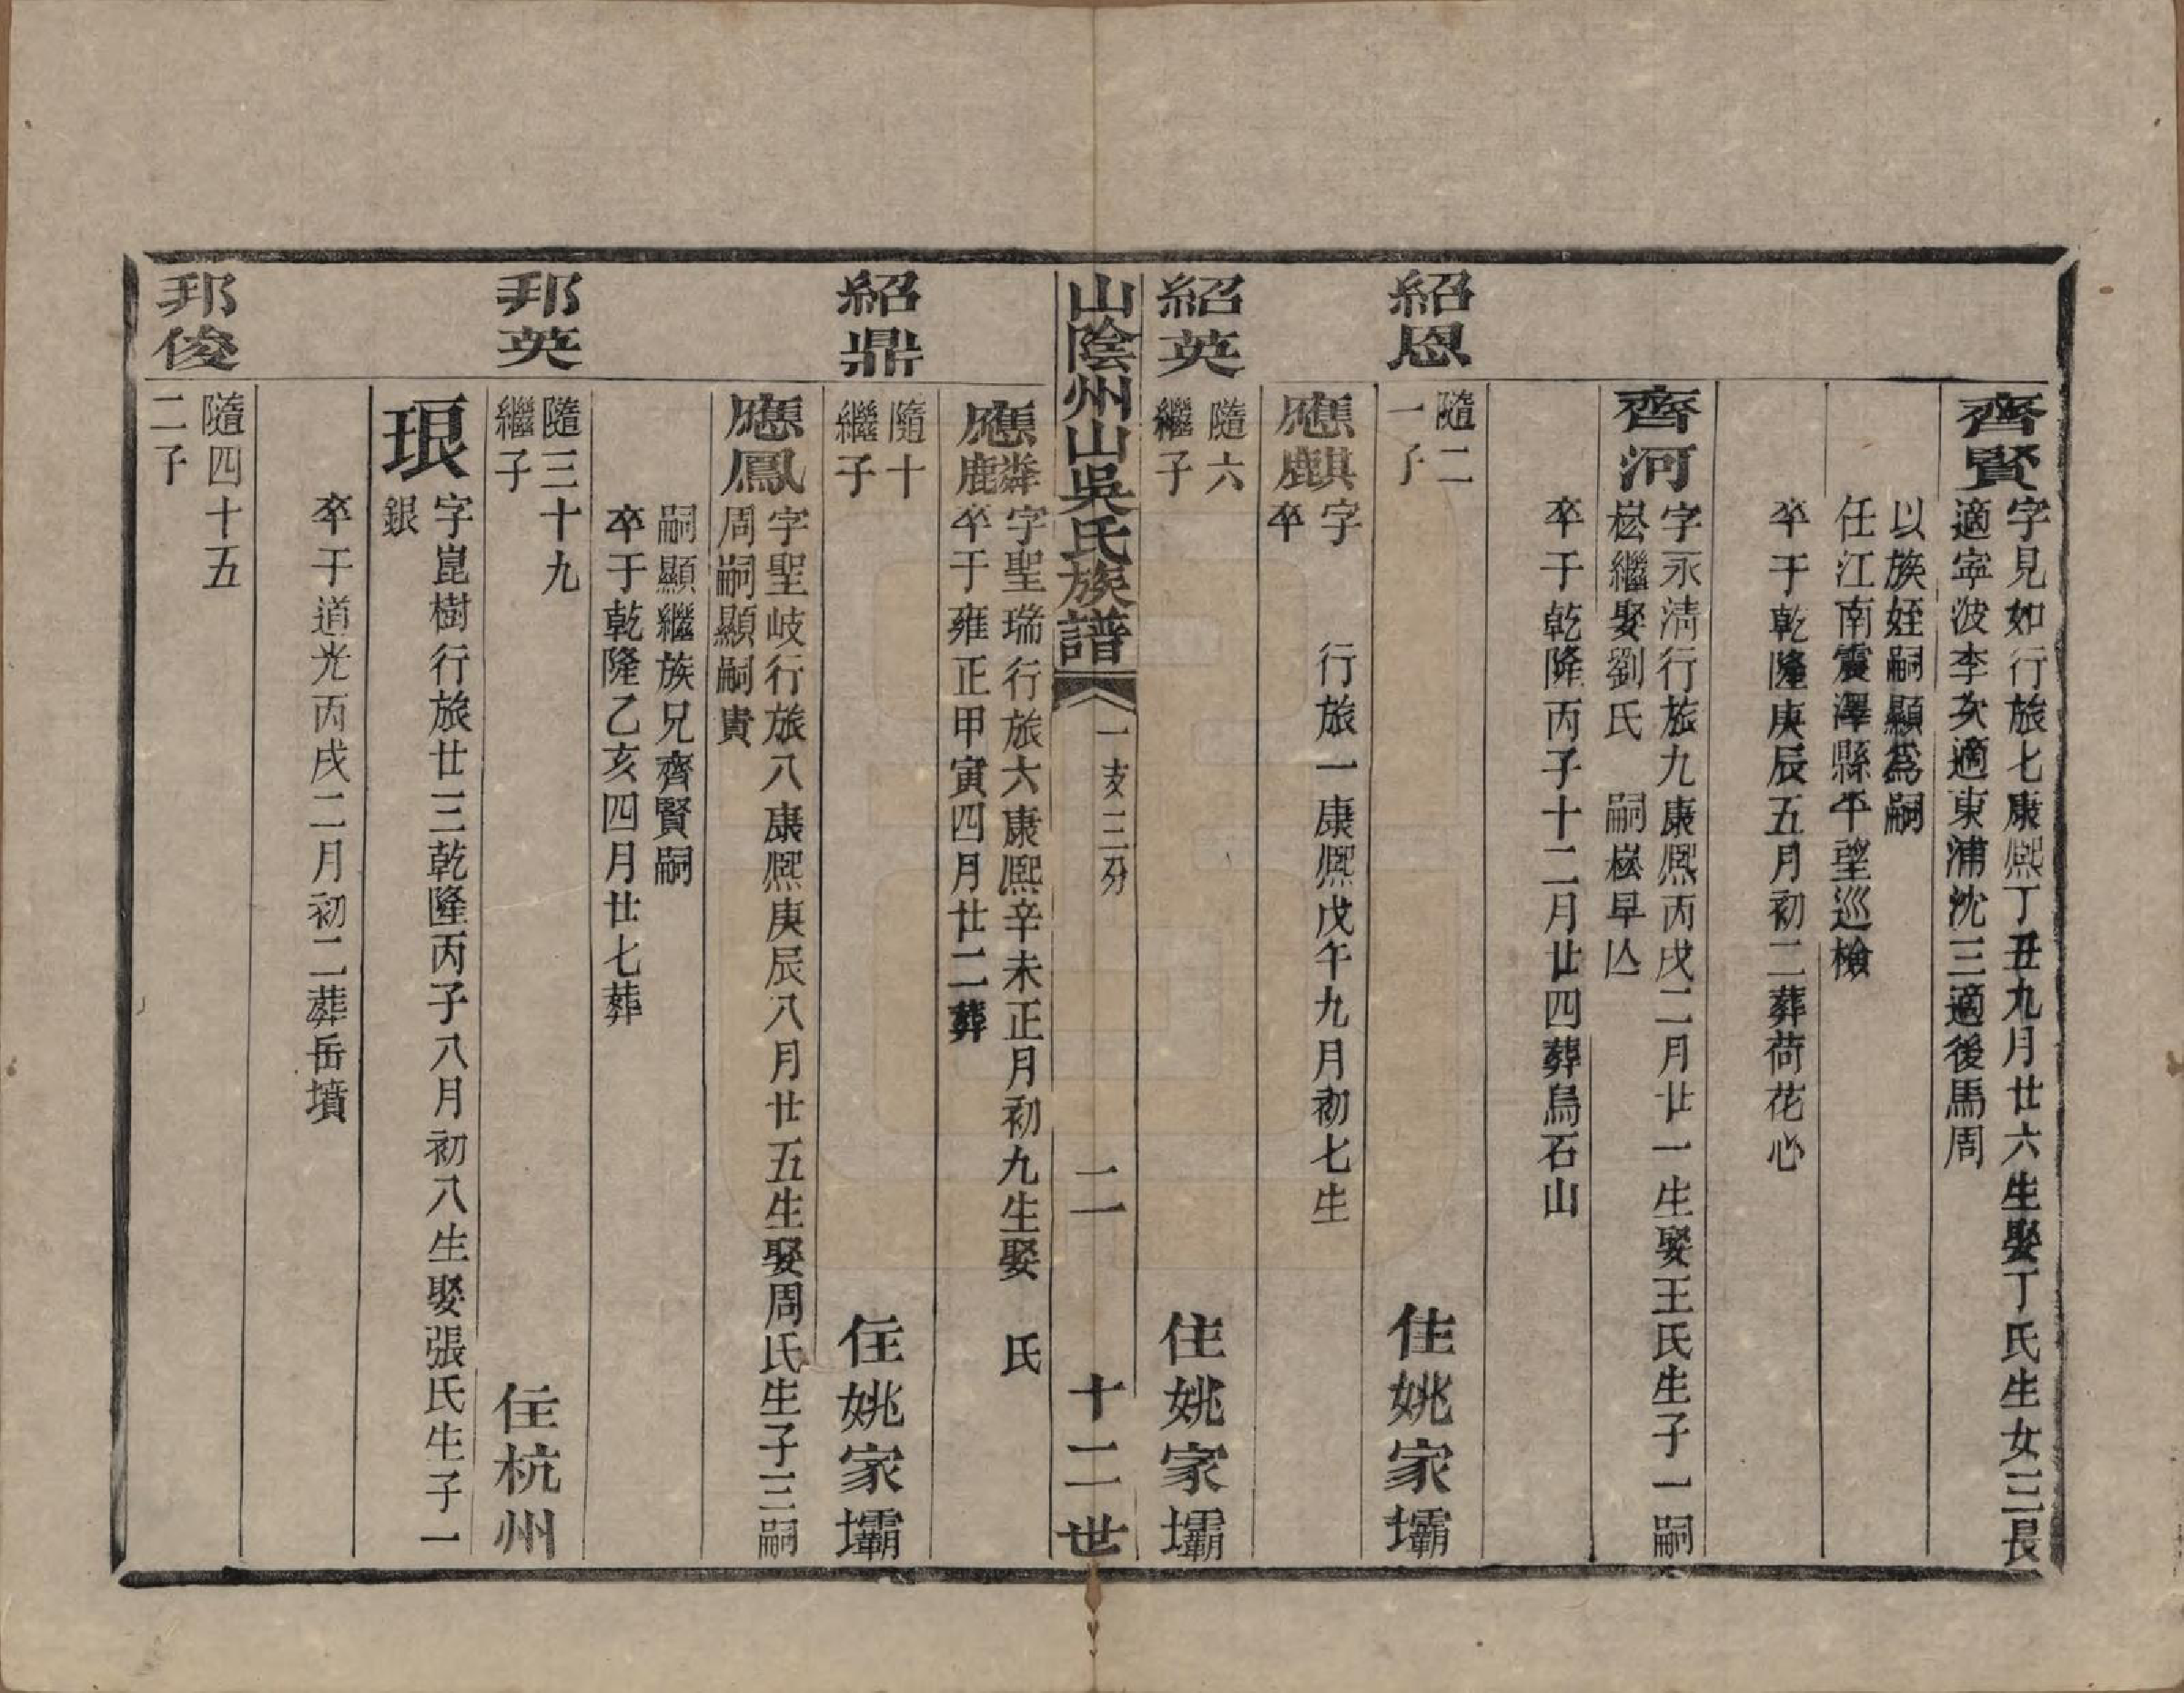 齊賢
字見如行旅七康熙丁丑九月廿六生娶丁氏生女三長
適寧波李次適東浦沈三適後馬周
以族姪嗣顯為嗣
任江南震澤縣平望巡檢
卒于乾隆庚辰五月初二葬荷花心
齊河
字永清行旅九康熙丙戌二月廿一生娶王氏生子一嗣
崧繼娶劉氏　嗣崧早亾
卒于乾隆丙子十二月廿四葬烏石山
紹恩
隨二
一子
住姚家壩
應麒
字　　行旅一康熙戊午九月初七生
卒
紹英
隨六
繼子
住姚家壩
山陰州山吳氏族譜
一支三分
二
十二世
應麟
鹿
字聖瑞行旅六康熙辛未正月初九生娶　氏
卒于雍正甲寅四月廿二葬
紹鼎
隨十
繼子
住姚家壩
應鳳
字聖岐行旅八康熙庚辰八月廿五生娶周氏生子三嗣
周嗣顯嗣貴
嗣顯繼族兄齊賢嗣
卒于乾隆乙亥四月廿七葬
邦英
隨三十九
繼子
住杭州
琅
字崑樹行旅廿三乾隆丙子八月初八生娶張氏生子一
銀
卒于道光丙戌二月初二葬岳墳
邦俊
隨四十五
二子